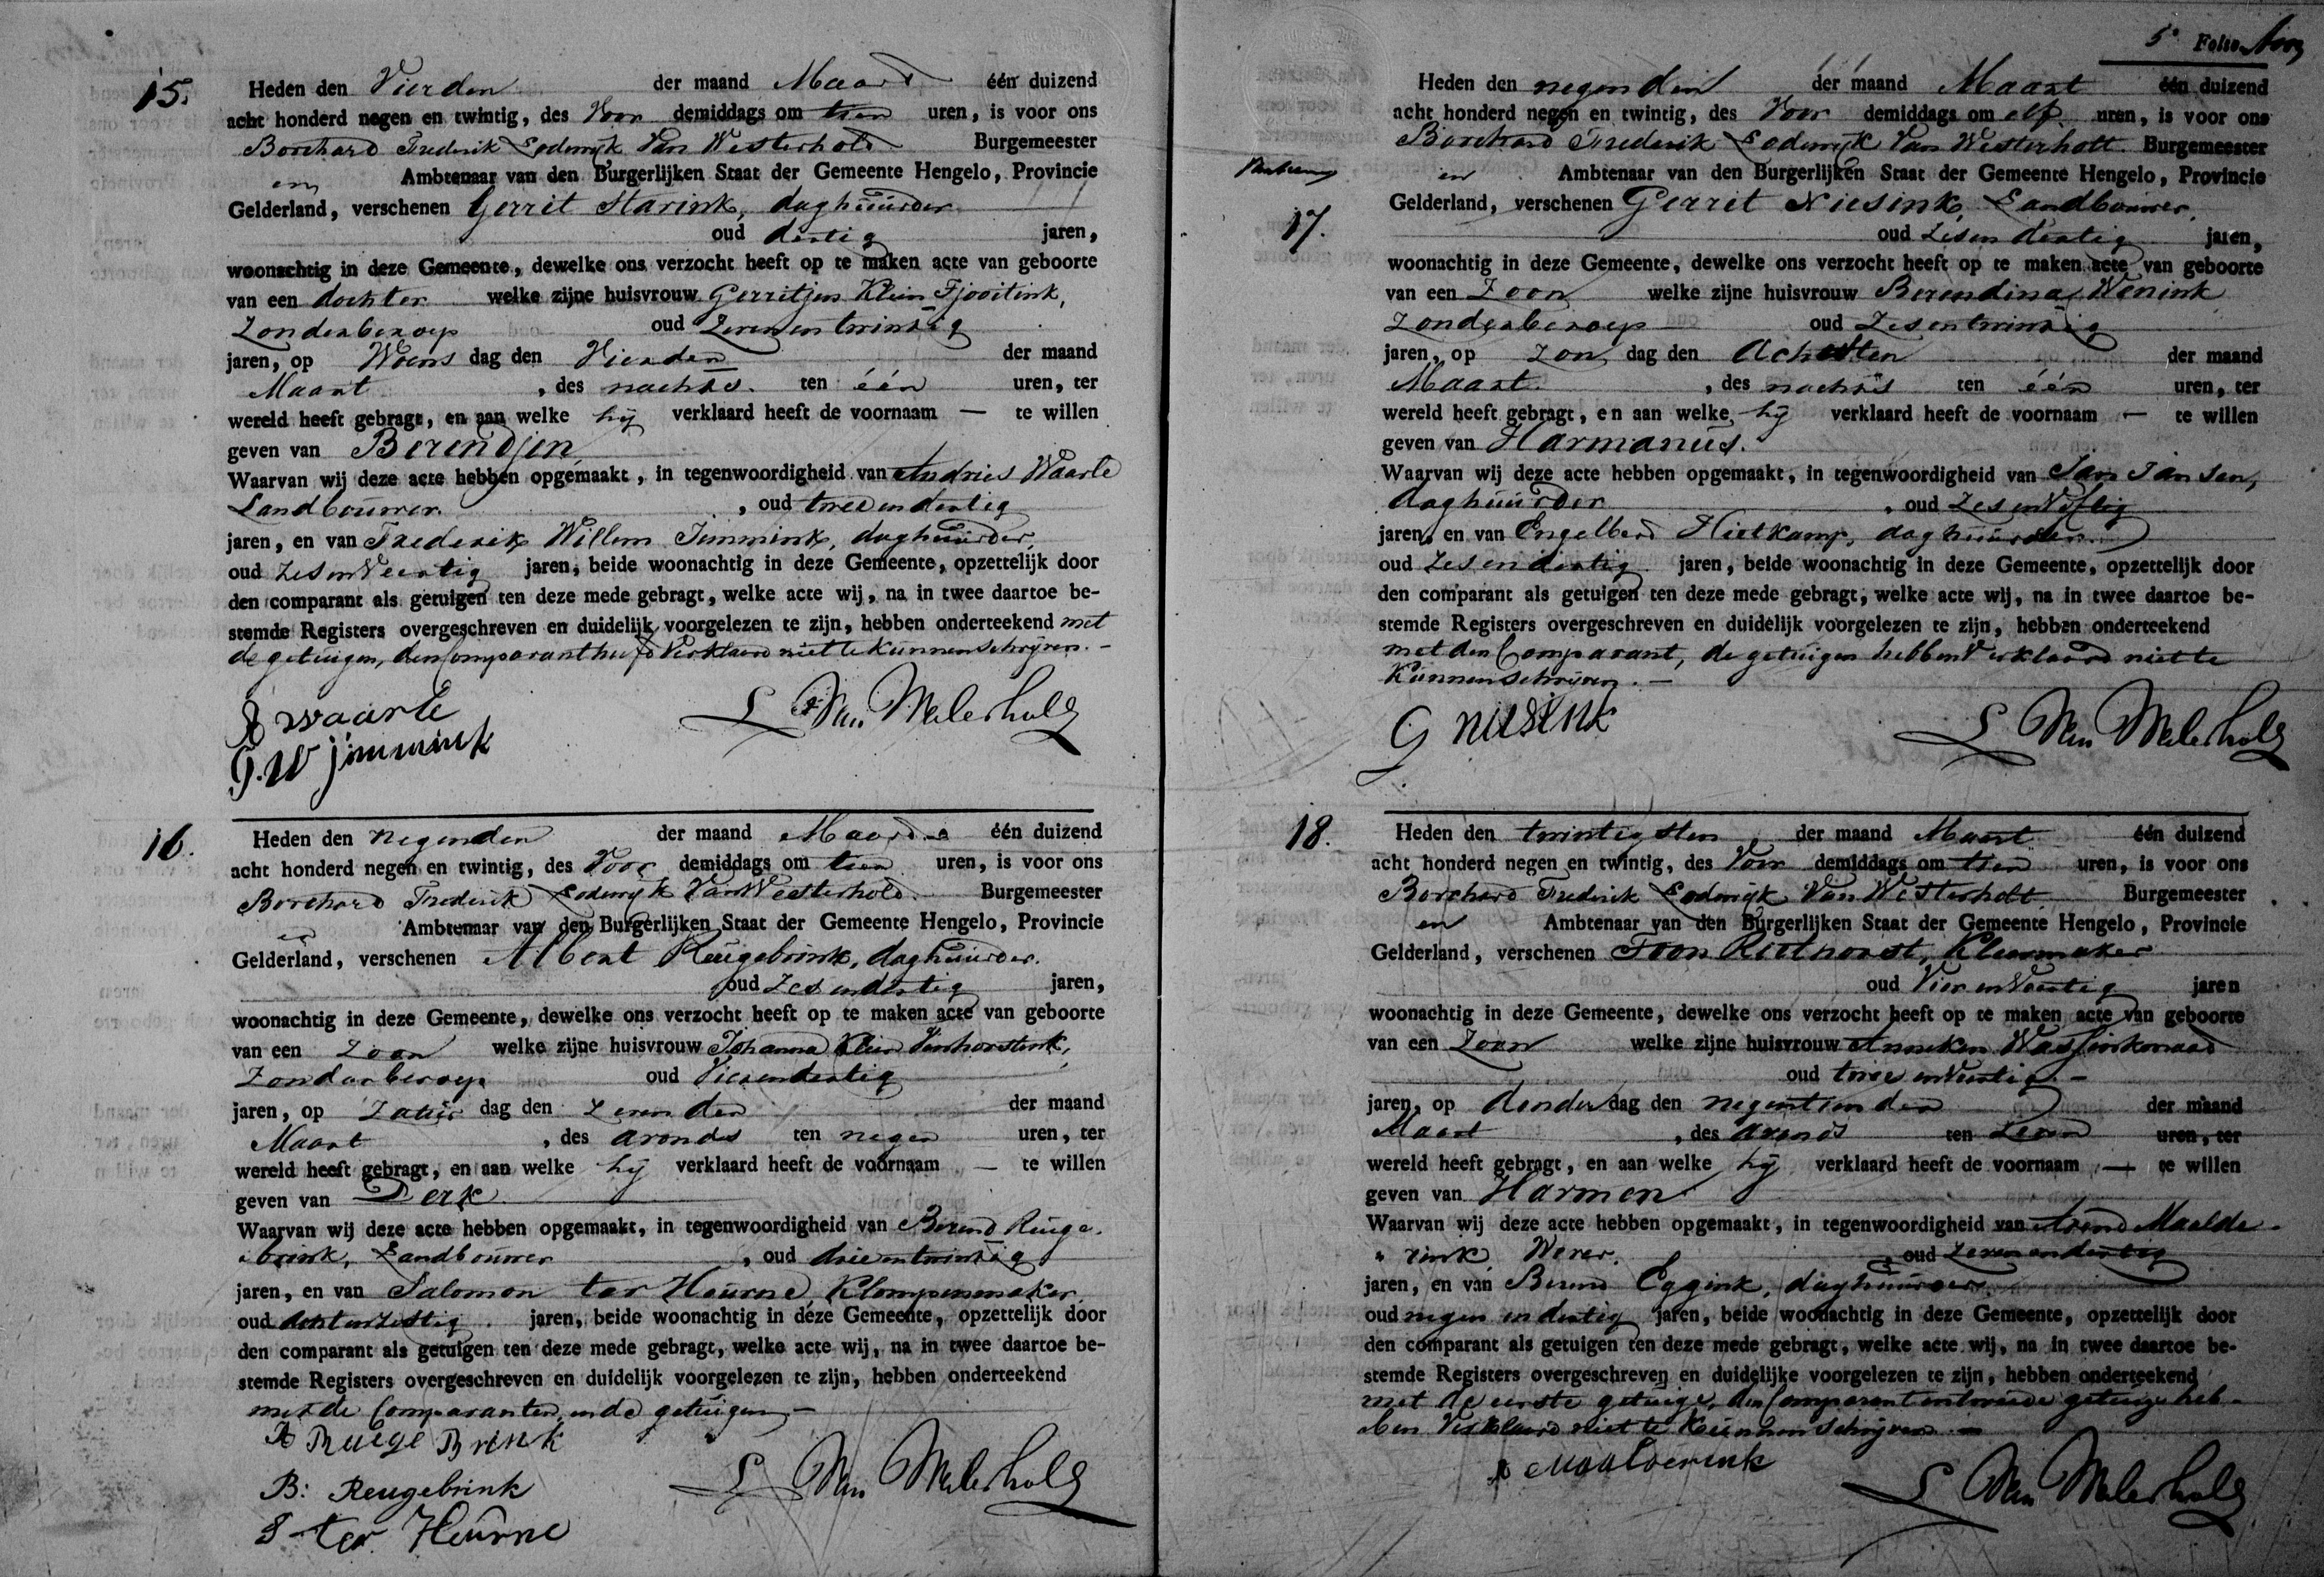 15.
Heden den Vierden der maand Maart één duizend
acht honderd negen en twintig, des Voor demiddags om tien uren, is voor ons
Borchard Frederik Lodewijk Van Westerholt Burgemeester
en Ambtenaar van den Burgerlijken Staat der Gemeente Hengelo, Provincie
Gelderland, verschenen Gerrit Starink, daghuurder
oud dertig jaren,
woonachtig in deze Gemeente, dewelke ons verzocht heeft op te maken acte van geboorte
van een dochter welke zijne huisvrouw Gerritjen Klein Tjooitink,
Zonderberoep oud Zevenentwintig
jaren, op Woens dag den Vierden der maand
Maart, des nachts ten één uren, ter
wereld heeft gebragt, en aan welke hij verklaard heeft de voornaam — te willen
geven van Berendjen
Waarvan wij deze acte hebben opgemaakt, in tegenwoordigheid van Andries Waarle
Landbouwer, oud tweeendertig
jaren, en van Frederik Willem Jimmink, daghuurder,
oud ZesenVeertig jaren, beide woonachtig in deze Gemeente, opzettelijk door
den comparant als getuigen ten deze mede gebragt, welke acte wij, na in twee daartoe be-
stemde Registers overgeschreven en duidelijk voorgelezen te zijn, hebben onderteekend met
de getuigen, den Comparant heeft Verklaard niet te kunnen schrijven. —
A waarle
F. W jimmink
L Van Westerholt
16.
Heden den negenden der maand Maart één duizend
acht honderd negen en twintig, des Voor demiddags om tien uren, is voor ons
Borchard Frederik Lodewijk Van Westerholt Burgemeester
en Ambtenaar van den Burgerlijken Staat der Gemeente Hengelo, Provincie
Gelderland, verschenen Albert Reugebrink, daghuurder.
oud Zesendertig jaren,
woonachtig in deze Gemeente, dewelke ons verzocht heeft op te maken acte van geboorte
van een Zoon welke zijne huisvrouw Johanna Klein Venhorstink,
Zonderberoep oud Vierendertig
jaren, op Zatur dag den Zevenden der maand
Maart, des avonds ten negen uren, ter
wereld heeft gebragt, en aan welke hij verklaard heeft de voornaam — te willen
geven van Derk
Waarvan wij deze acte hebben opgemaakt, in tegenwoordigheid van Berend Reuge-
brink, Landbouwer, oud drieentwintig
jaren, en van Salomon ter Heurne Klompenmaker,
oud Achtenzestig jaren, beide woonachtig in deze Gemeente, opzettelijk door
den comparant als getuigen ten deze mede gebragt, welke acte wij, na in twee daartoe be-
stemde Registers overgeschreven en duidelijk voorgelezen te zijn, hebben onderteekend
met de Comparanten, en de getuigen —
A Reuge Brink
B: Reugebrink
S ter Heurne
L Van Westerholt
5e Folio
17.
Heden den negenden der maand Maart één duizend
acht honderd negen en twintig, des Voor demiddags om elf uren, is voor ons
Borchard Frederik Lodewijk Van Westerholt Burgemeester
en Ambtenaar van den Burgerlijken Staat der Gemeente Hengelo, Provincie
Gelderland, verschenen Gerrit Niesink, Landbouwer,
oud Zesendertig jaren,
woonachtig in deze Gemeente, dewelke ons verzocht heeft op te maken acte van geboorte
van een Zoon welke zijne huisvrouw Berendina Wenink
Zonderberoep oud Zesentwintig
jaren, op Zon dag den Achtsten der maand
Maart, des nachts ten één uren, ter
wereld heeft gebragt, en aan welke hij verklaard heeft de voornaam — te willen
geven van Harmanus.
Waarvan wij deze acte hebben opgemaakt, in tegenwoordigheid van Jan Jansen,
daghuurder, oud ZesenVijftig
jaren, en van Engelberd Hietkamp, daghuurder
oud Zesendertig jaren, beide woonachtig in deze Gemeente, opzettelijk door
den comparant als getuigen ten deze mede gebragt, welke acte wij, na in twee daartoe be-
stemde Registers overgeschreven en duidelijk voorgelezen te zijn, hebben onderteekend
met den Comparant, de getuigen hebben Verklaard niet te
Kunnen schrijven. —
G niesink
L Van Westerholt
18.
Heden den twintigsten der maand Maart één duizend
acht honderd negen en twintig, des Voor demiddags om tien uren, is voor ons
Borchard Frederik Lodewijk Van Westerholt Burgemeester
en Ambtenaar van den Burgerlijken Staat der Gemeente Hengelo, Provincie
Gelderland, verschenen Toon Riethorst, Kleermaker
oud Vier en Veertig jaren
woonachtig in deze Gemeente, dewelke ons verzocht heeft op te maken acte van geboorte
van een Zoon welke zijne huisvrouw Anneken
oud twee enVeertig —
jaren, op donder dag den negentienden der maand
Maart, des avonds ten Zeven uren, ter
wereld heeft gebragt, en aan welke hij verklaard heeft de voornaam — te willen
geven van Harmen
Waarvan wij deze acte hebben opgemaakt, in tegenwoordigheid van Arend Maalde-
rink, Wever, oud Zevenendertig
jaren, en van Berend Eggink, daghuurder
oud negen en dertig jaren, beide woonachtig in deze Gemeente, opzettelijk door
den comparant als getuigen ten deze mede gebragt, welke acte wij, na in twee daartoe be-
stemde Registers overgeschreven en duidelijke voorgelezen te zijn, hebben onderteekend
met de eerste getuige, den Comparant en tweede getuige heb-
ben Verklaard niet te Kunnen schrijven —
A Maalderink
L Van Westerholt